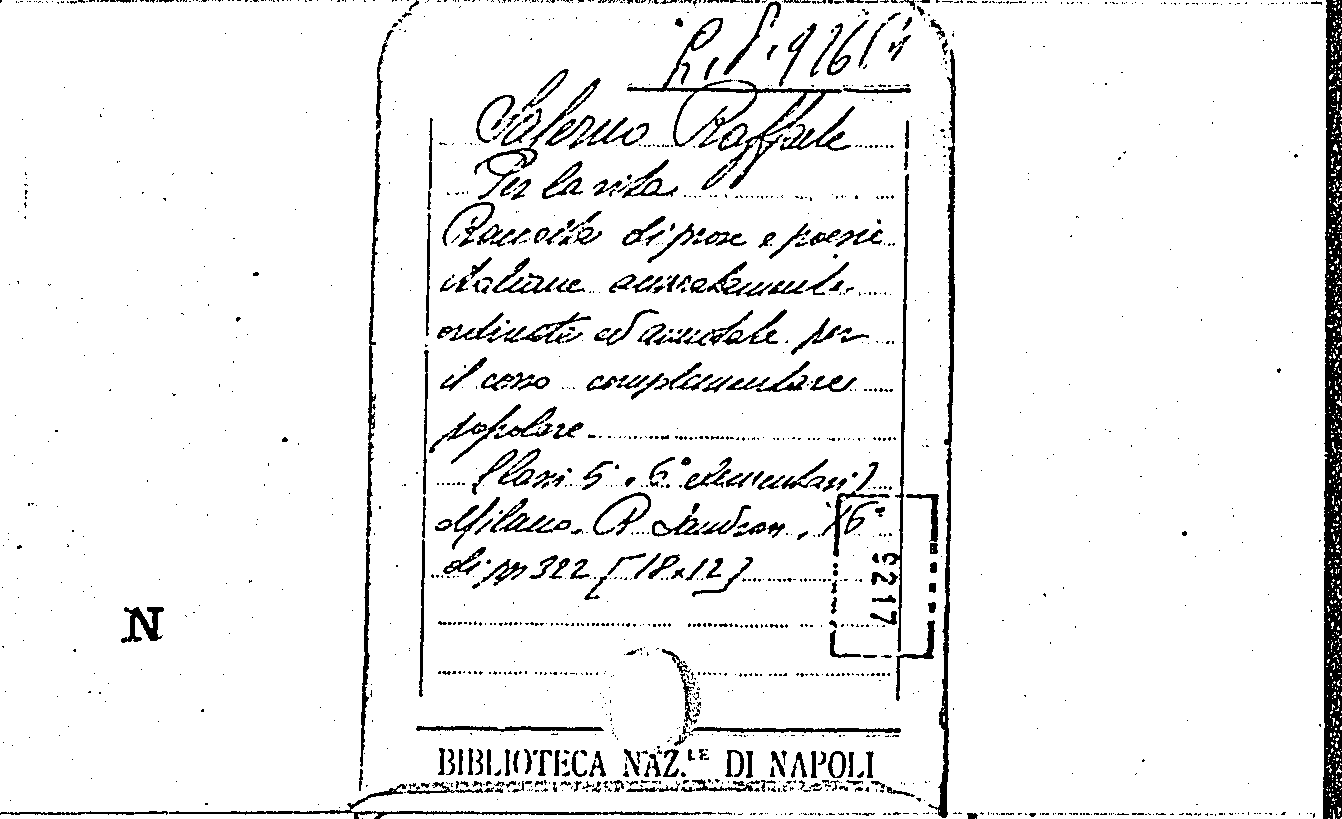 Salerno Raffaele
Per la vita
Raccolta di prose e poesie
italiane accuratamente
ordinate ed annotate per
il corso complementare
popolare
(Classi 5ª e 6ª elementari)
Milano. R. Sandron.
di pp 322 [18x12]
9217
N
BIBLIOTECA NAZ.LE DI NAPOLI